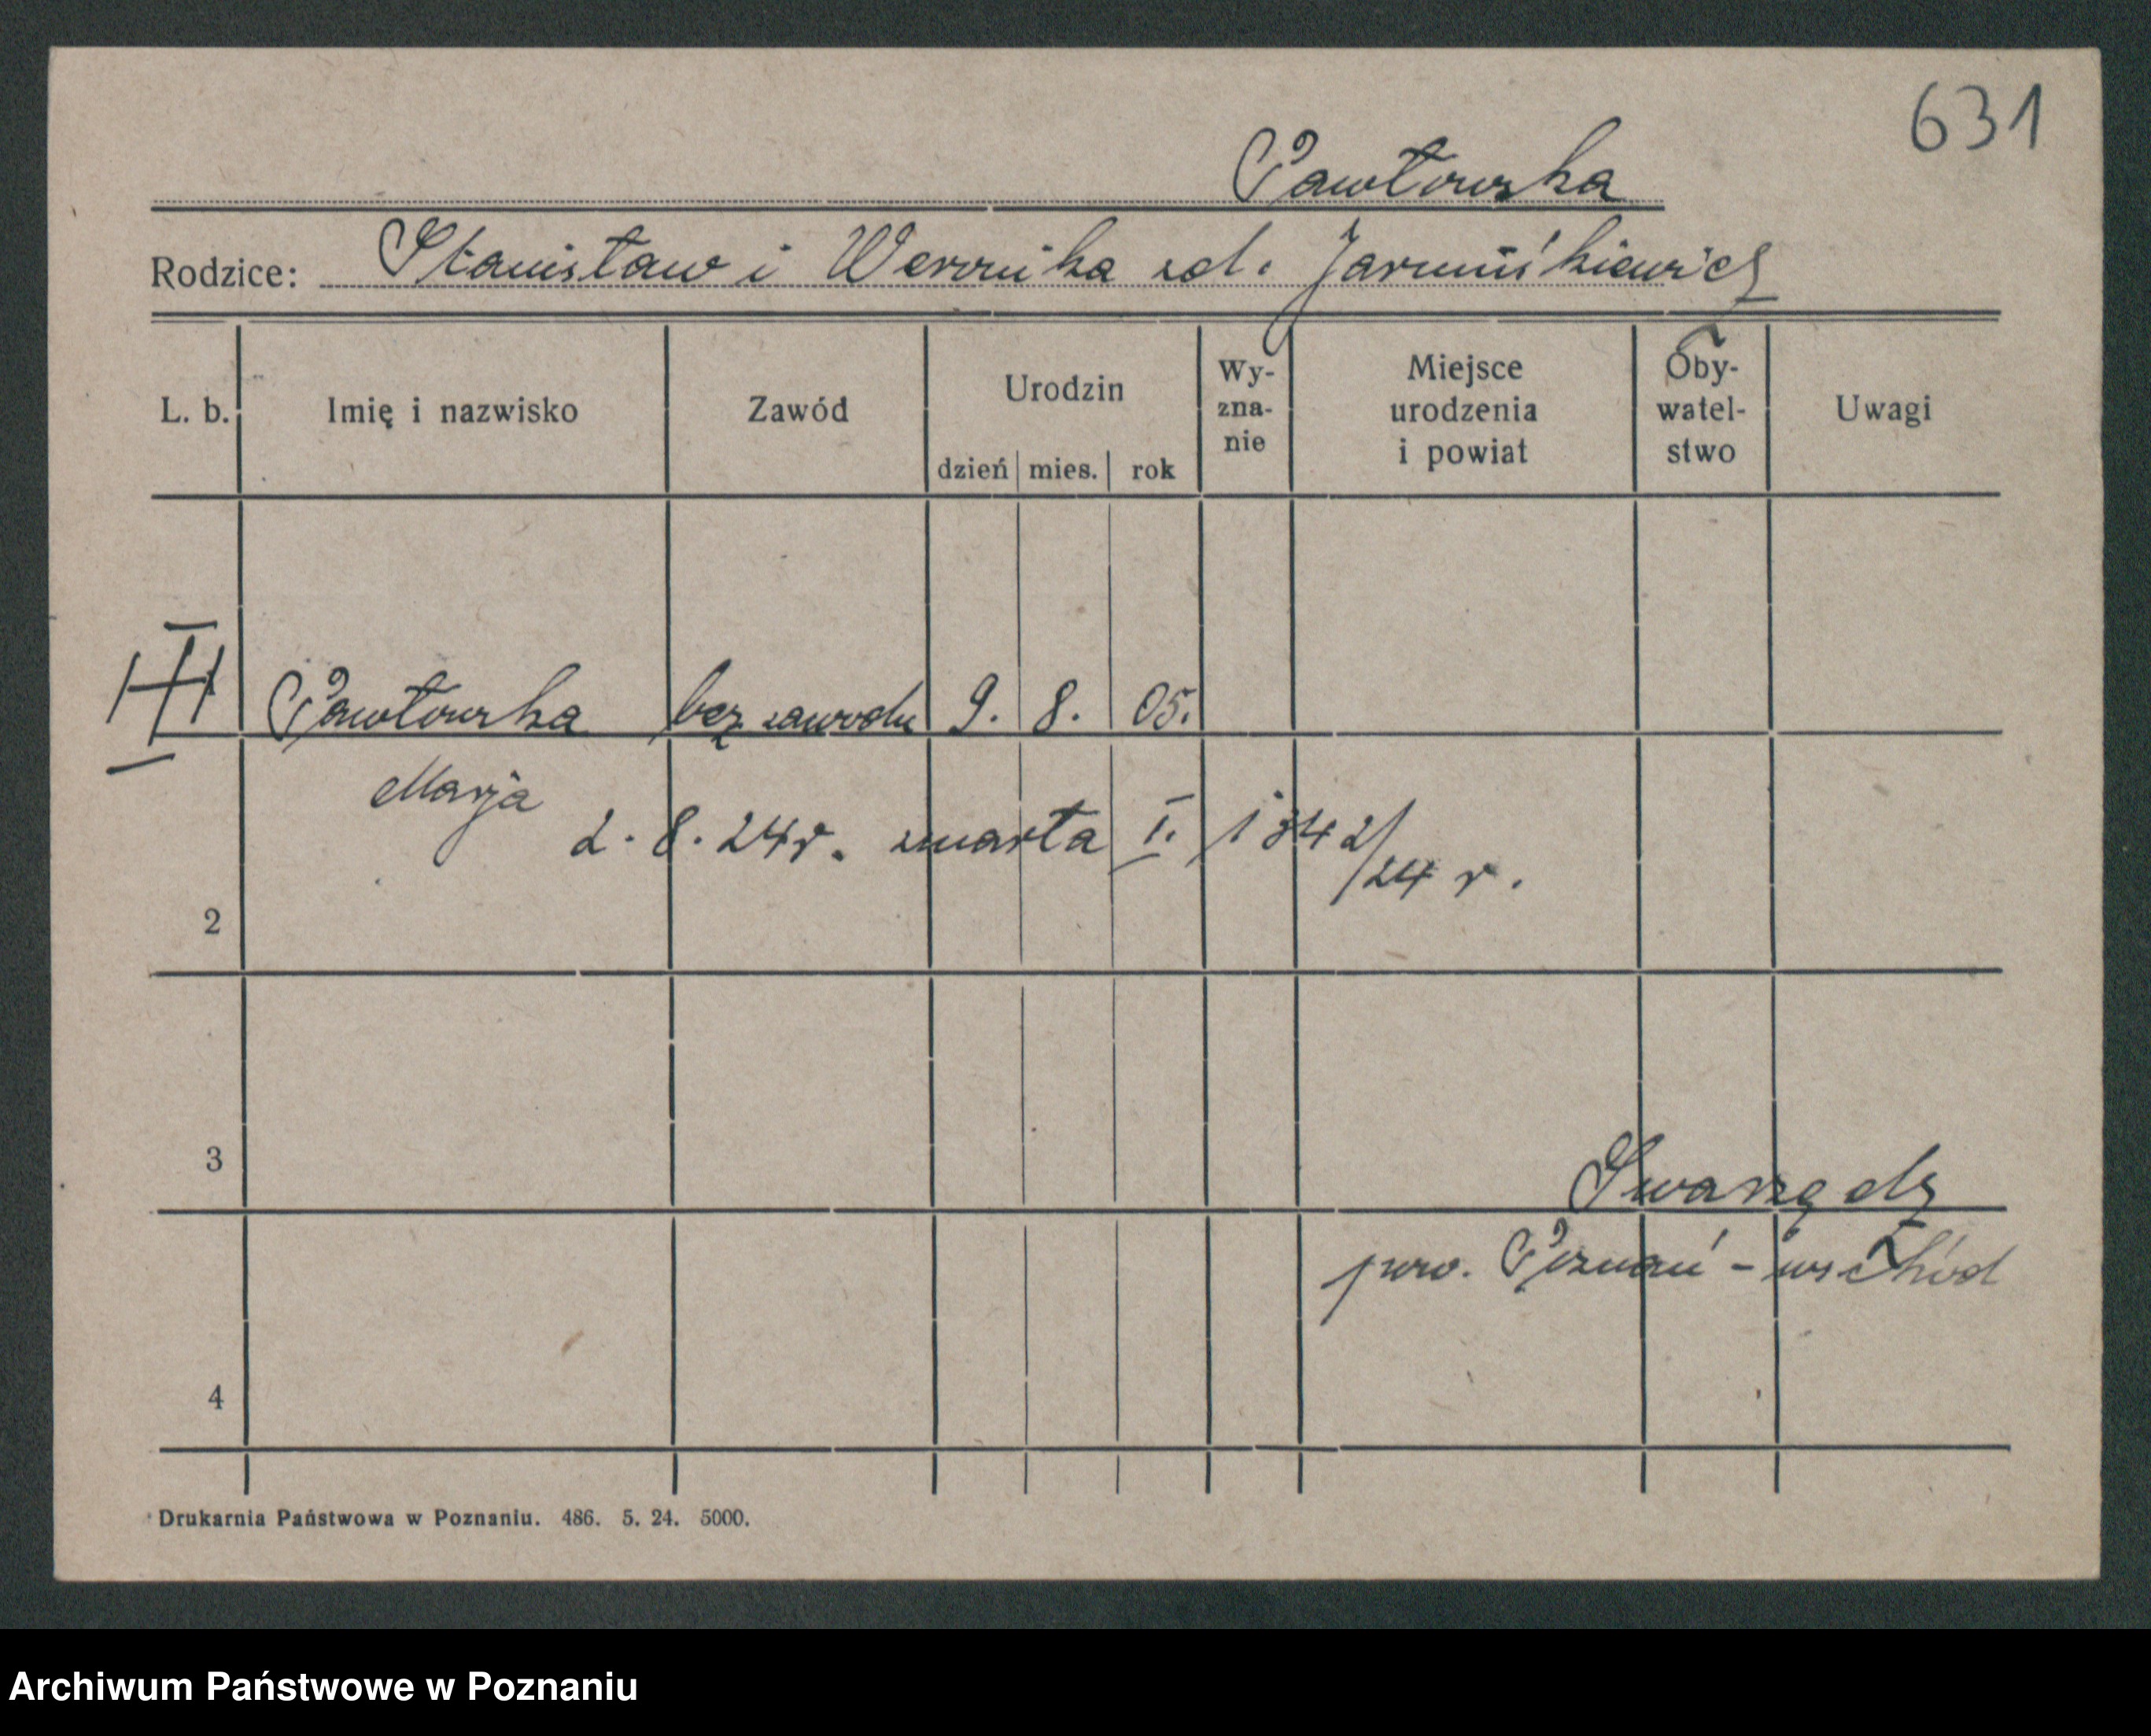 631
Pawłowska
Rodzice: Stanisław i Weronika zd. Jarmuśkiewicz
L. b. Imię i nazwisko Zawód Urodzin dzień mies. rok Wy-zna-nie Miejsce urodzenia i powiat Oby-watel-stwo Uwagi
Pawłowska bez zawodu 9. 8. 05.
Marja
2. 8. 24 r. zmarła I. 1342/24 r.
2
3
Swarzędz
pow. Poznań - wschód
4
Drukarnia Państwowa w Poznaniu. 486. 5. 24. 5000.
Archiwum Państwowe w Poznaniu